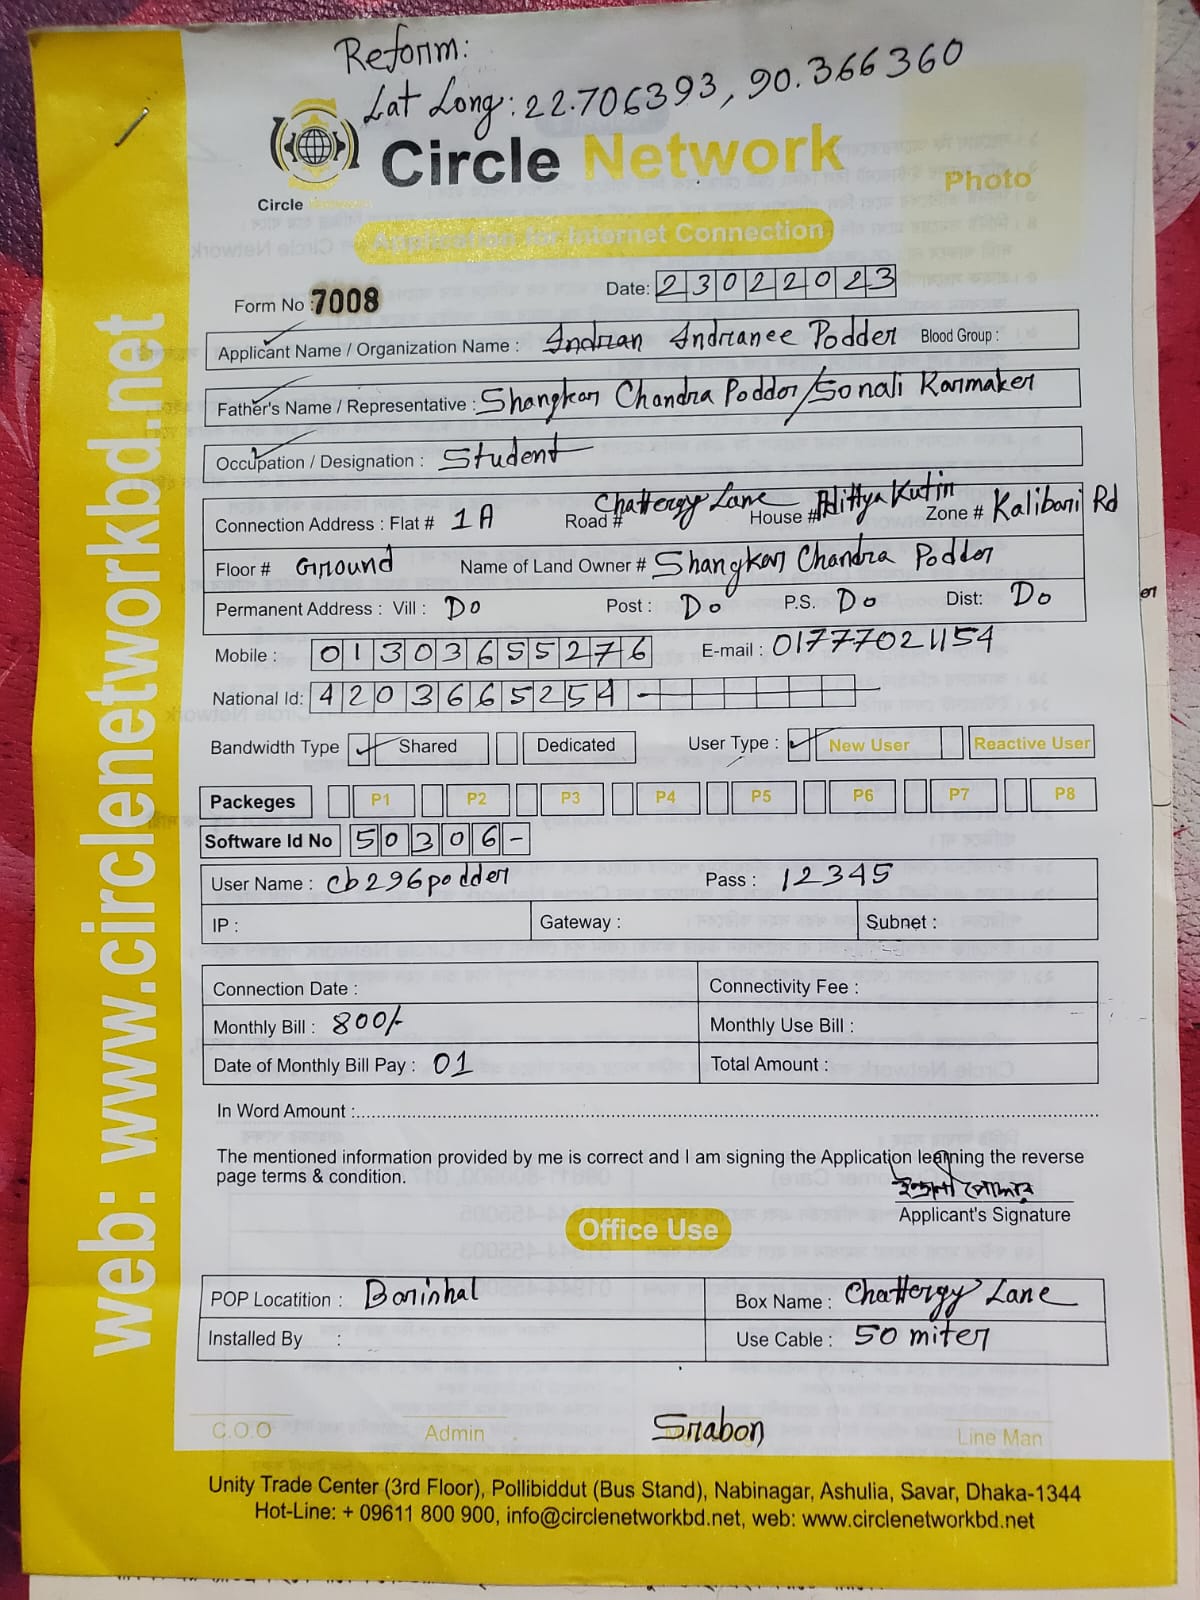 Reform:
Lat Long: 22.706393, 90.366360
Circle Network
Circle Network
Photo
Application for Internet Connection
Form No : 7008 Date: 23022023
Applicant Name / Organization Name : Indranee Podder Blood Group :
Father's Name / Representative : Shangkar Chandra Podder/Sonali Karmaker
Occupation / Designation : Student
Connection Address : Flat # 1A Road # Chattergy Lane House # Adittya Kutir Zone # Kalibari Rd
Floor # Ground Name of Land Owner # Shangkar Chandra Podder
Permanent Address : Vill : Do Post : Do P.S. Do Dist: Do
Mobile : 01303655276 E-mail : 01777021154
National Id: 4203665254-
Bandwidth Type Shared Dedicated User Type : New User Reactive User
Packeges P1 P2 P3 P4 P5 P6 P7 P8
Software Id No 50306-
User Name : cb296podder Pass : 12345
IP : Gateway : Subnet :
Connection Date : Connectivity Fee :
Monthly Bill : 800/- Monthly Use Bill :
Date of Monthly Bill Pay : 01 Total Amount :
In Word Amount :
The mentioned information provided by me is correct and I am signing the Application learning the reverse
page terms & condition.
ইন্দ্রানী পোদ্দার
Applicant's Signature
Office Use
POP Locatition : Barishal Box Name : Chattergy Lane
Installed By : Use Cable : 50 miter
C.O.O Admin Srabon Line Man
Unity Trade Center (3rd Floor), Pollibiddut (Bus Stand), Nabinagar, Ashulia, Savar, Dhaka-1344
Hot-Line: + 09611 800 900, info@circlenetworkbd.net, web: www.circlenetworkbd.net
web: www.circlenetworkbd.net